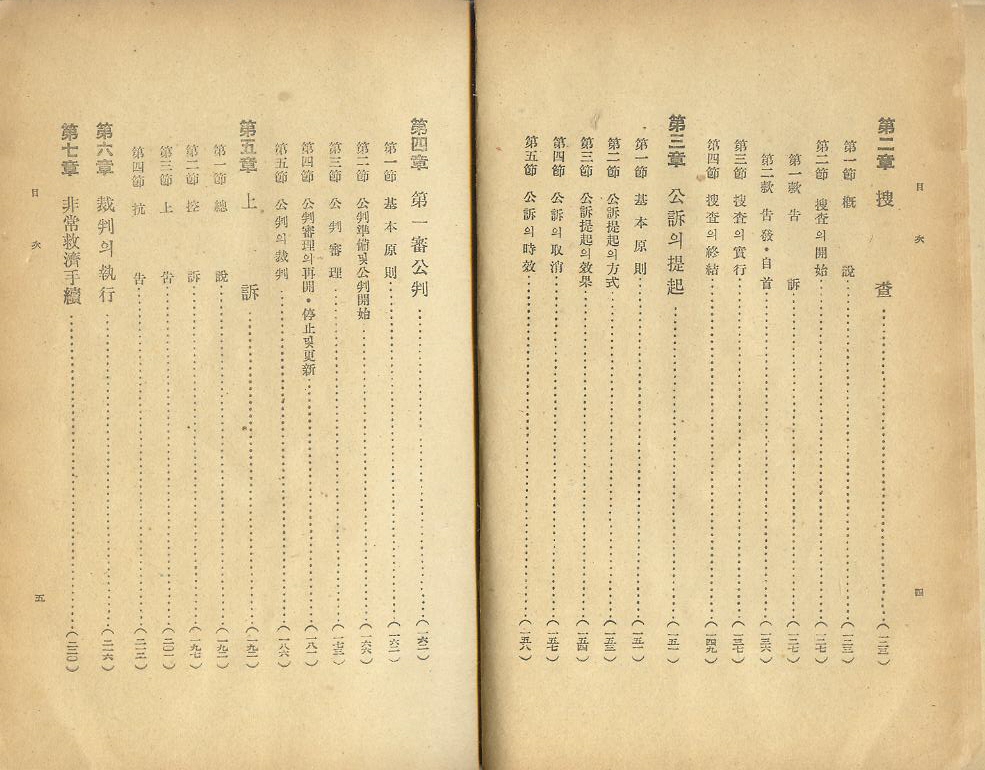 目次
四
第二章 捜査 (一二三)
第一節 槪說 (一二三)
第二節 捜査의開始 (一二七)
第一款 告訴 (一二七)
第二款 告發・自首 (一三六)
第三節 捜査의實行 (一三七)
第四節 捜査의終結 (一四九)
第三章 公訴의提起 (一五一)
第一節 基本原則 (一五一)
第二節 公訴提起의方式 (一五三)
第三節 公訴提起의效果 (一五四)
第四節 公訴의取消 (一五七)
第五節 公訴의時效 (一五八)
第四章 第一審公判 (一六二)
第一節 基本原則 (一六二)
第二節 公判準備및公判開始 (一六六)
第三節 公判審理 (一七三)
第四節 公判審理의再開・停止및更新 (一八一)
第五節 公判의裁判 (一八六)
第五章 上訴 (一九二)
第一節 總說 (一九二)
第二節 控訴 (一九七)
第三節 上告 (二〇一)
第四節 抗告 (二一二)
第六章 裁判의執行 (二一六)
第七章 非常救濟手續 (二二〇)
目次
五